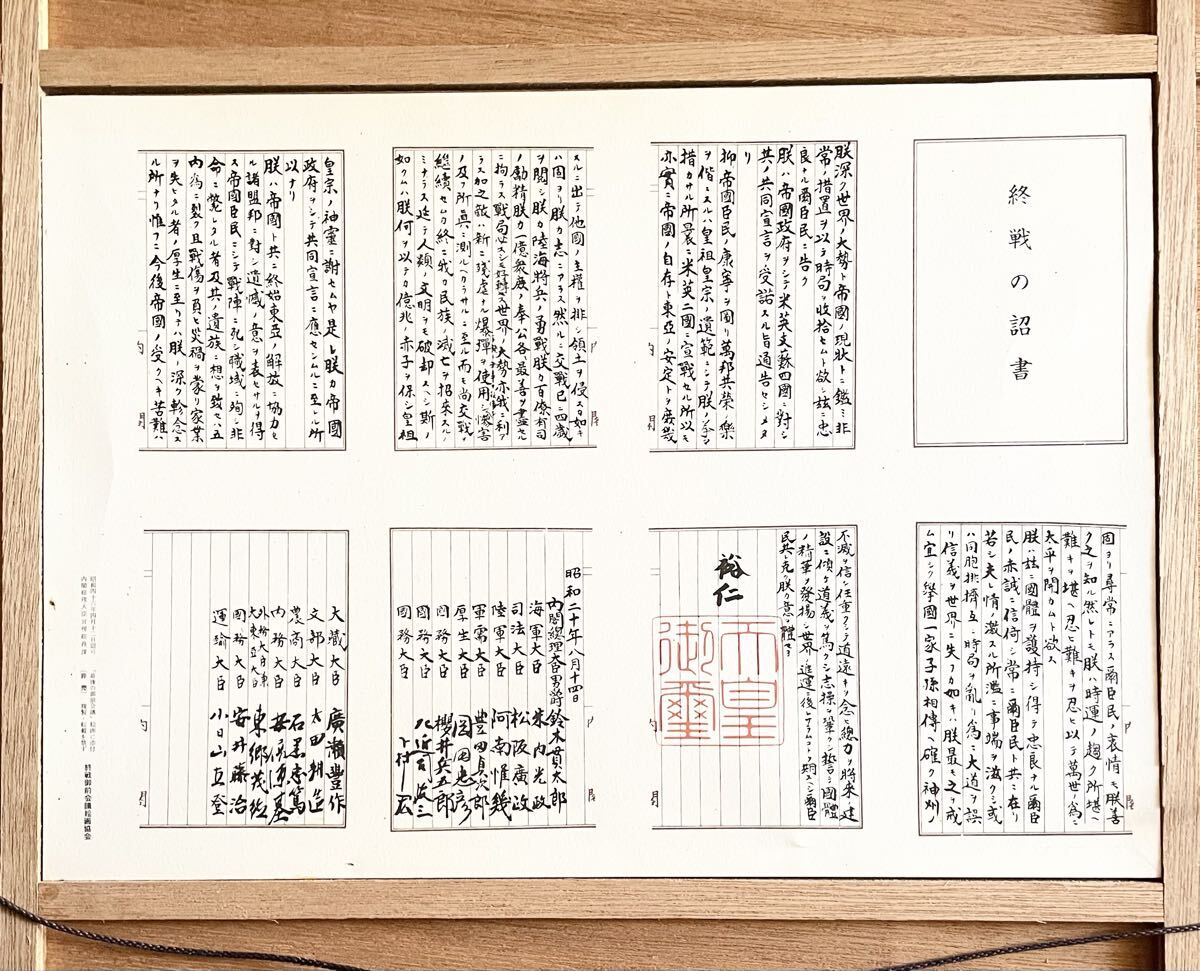 終戦の詔書
朕深ク世界ノ大勢ト帝國ノ現狀トニ鑑ミ非
常ノ措置ヲ以テ時局ヲ收拾セムト欲シ茲ニ忠
良ナル爾臣民ニ告ク
朕ハ帝國政府ヲシテ米英支蘇四國ニ對シ
其ノ共同宣言ヲ受諾スル旨通告セシメタ
リ
抑帝國臣民ノ康寧ヲ圖リ萬邦共榮ノ樂
ヲ偕ニスルハ皇祖皇宗ノ遺範ニシテ朕ノ拳々
措カサル所曩ニ米英二國ニ宣戰セル所以モ
亦實ニ帝國ノ自存ト東亞ノ安定トヲ庶幾
スルニ出テ他國ノ主權ヲ排シ領土ヲ侵スカ如キ
ハ固ヨリ朕カ志ニアラス然ルニ交戰已ニ四歲
ヲ閱シ朕カ陸海將兵ノ勇戰朕カ百僚有司
ノ勵精朕カ一億衆庶ノ奉公各最善ヲ盡セル
ニ拘ラス戰局必スシモ好轉セス世界ノ大勢亦我ニ利ア
ラス加之敵ハ新ニ殘虐ナル爆彈ヲ使用シテ慘害
ノ及フ所眞ニ測ルヘカラサルニ至ル而モ尚交戰ヲ
繼續セムカ終ニ我カ民族ノ滅亡ヲ招來スルノ
ミナラス延テ人類ノ文明ヲモ破却スヘシ斯ノ
如クムハ朕何ヲ以テカ億兆ノ赤子ヲ保シ皇祖
皇宗ノ神靈ニ謝セムヤ是レ朕カ帝國
政府ヲシテ共同宣言ニ應セシムルニ至レル所
以ナリ
朕ハ帝國ト共ニ終始東亞ノ解放ニ協力セ
ル諸盟邦ニ對シ遺憾ノ意ヲ表セサルヲ得
ス帝國臣民ニシテ戰陣ニ死シ職域ニ殉シ非
命ニ斃レタル者及其ノ遺族ニ想ヲ致セハ五
內爲ニ裂ク且戰傷ヲ負ヒ災禍ヲ蒙リ家業
ヲ失ヒタル者ノ厚生ニ至リテハ朕ノ深ク軫念ス
ル所ナリ惟フニ今後帝國ノ受クヘキ苦難ハ
固ヨリ尋常ニアラス爾臣民ノ衷情モ朕善
ク之ヲ知ル然レトモ朕ハ時運ノ趨ク所堪ヘ
難キヲ堪ヘ忍ヒ難キヲ忍ヒ以テ萬世ノ爲ニ
太平ヲ開カムト欲ス
朕ハ茲ニ國體ヲ護持シ得テ忠良ナル爾臣
民ノ赤誠ニ信倚シ常ニ爾臣民ト共ニ在リ
若シ夫レ情ノ激スル所濫ニ事端ヲ滋クシ或
ハ同胞排擠互ニ時局ヲ亂リ爲ニ大道ヲ誤
リ信義ヲ世界ニ失フカ如キハ朕最モ之ヲ戒
ム宜シク擧國一家子孫相傳ヘ確ク神州ノ
不滅ヲ信シ任重クシテ道遠キヲ念ヒ總力ヲ將來ノ建
設ニ傾ケ道義ヲ篤クシ志操ヲ鞏クシ誓テ國體
ノ精華ヲ發揚シ世界ノ進運ニ後レサラムコトヲ期スヘシ爾臣
民其レ克ク朕カ意ヲ體セヨ
裕仁
天皇
御璽
昭和二十年八月十四日
內閣總理大臣男爵 鈴木貫太郎
海軍大臣 米內光政
司法大臣 松阪廣政
陸軍大臣 阿南惟幾
軍需大臣 豐田貞次郎
厚生大臣 岡田忠彥
國務大臣 櫻井兵五郎
國務大臣 左近司政三
國務大臣 下村宏
大藏大臣 廣瀨豐作
文部大臣 太田耕造
農商大臣 石黑忠篤
內務大臣 安倍源基
外務大臣兼大東亞大臣 東鄕茂德
國務大臣 安井藤治
運輸大臣 小日山直登
昭和四十六年四月十二日認可
内閣総理大臣官房総務課
「最後の御前会議」絵画に添付
複製・転載を禁ず
終戦御前会議絵画協会